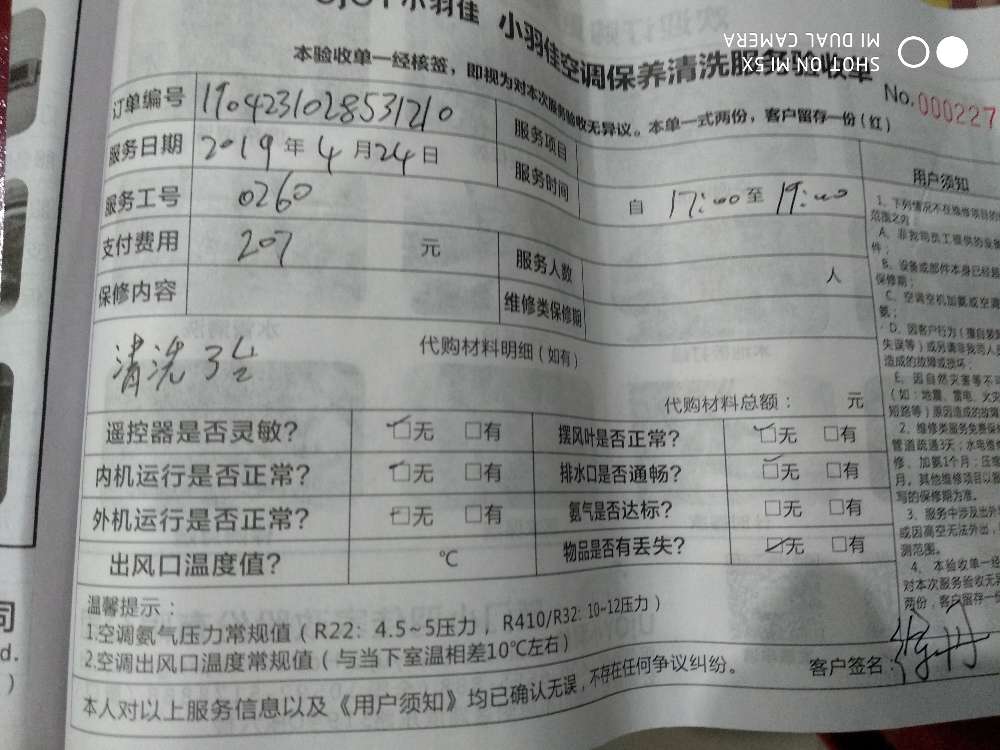 小羽佳 小羽佳空调保养清洗服务验收单
SHOT ON MI 5X
MI DUAL CAMERA
本验收单一经核签，即视为对本次服务验收无异议。本单一式两份，客户留存一份(红)
No.000227
订单编号 1904231028531210 服务项目
服务日期 2019年4月24日 服务时间 自 17:00 至 19:00
服务工号 0260
支付费用 207 元 服务人数 人
保修内容 维修类保修期
清洗3台
代购材料明细(如有)
代购材料总额： 元
遥控器是否灵敏? 无 有 摆风叶是否正常? 无 有
内机运行是否正常? 无 有 排水口是否通畅? 无 有
外机运行是否正常? 无 有 氨气是否达标? 无 有
出风口温度值? ℃ 物品是否有丢失? 无 有
温馨提示：
1.空调氨气压力常规值（R22：4.5~5压力，R410/R32：10-12压力）
2.空调出风口温度常规值（与当下室温相差10℃左右）
本人对以上服务信息以及《用户须知》均已确认无误，不存在任何争议纠纷。
客户签名：
用户须知
1、下列情况不在维修项目的
范围之内：
A、非我司员工提供的
件；
B、设备或部件本身已经
保修期；
C、空调空机加氨或空调
氨；
D、因客户行为（擅自
失误等）或另请非我司人员
造成的故障或损坏；
E、因自然灾害等不可
（如：地震、雷电、火灾
短路等）原因造成的故障
2、维修类服务免费保
管道疏通3天；水电维
修、加氨1个月；压
月，其他维修项目以
写的保修期为准。
3、服务中涉及出外
或因高空无法外出，
测范围。
4、本验收单一经
对本次服务验收无
两份，客户留存一份
司
d.
)